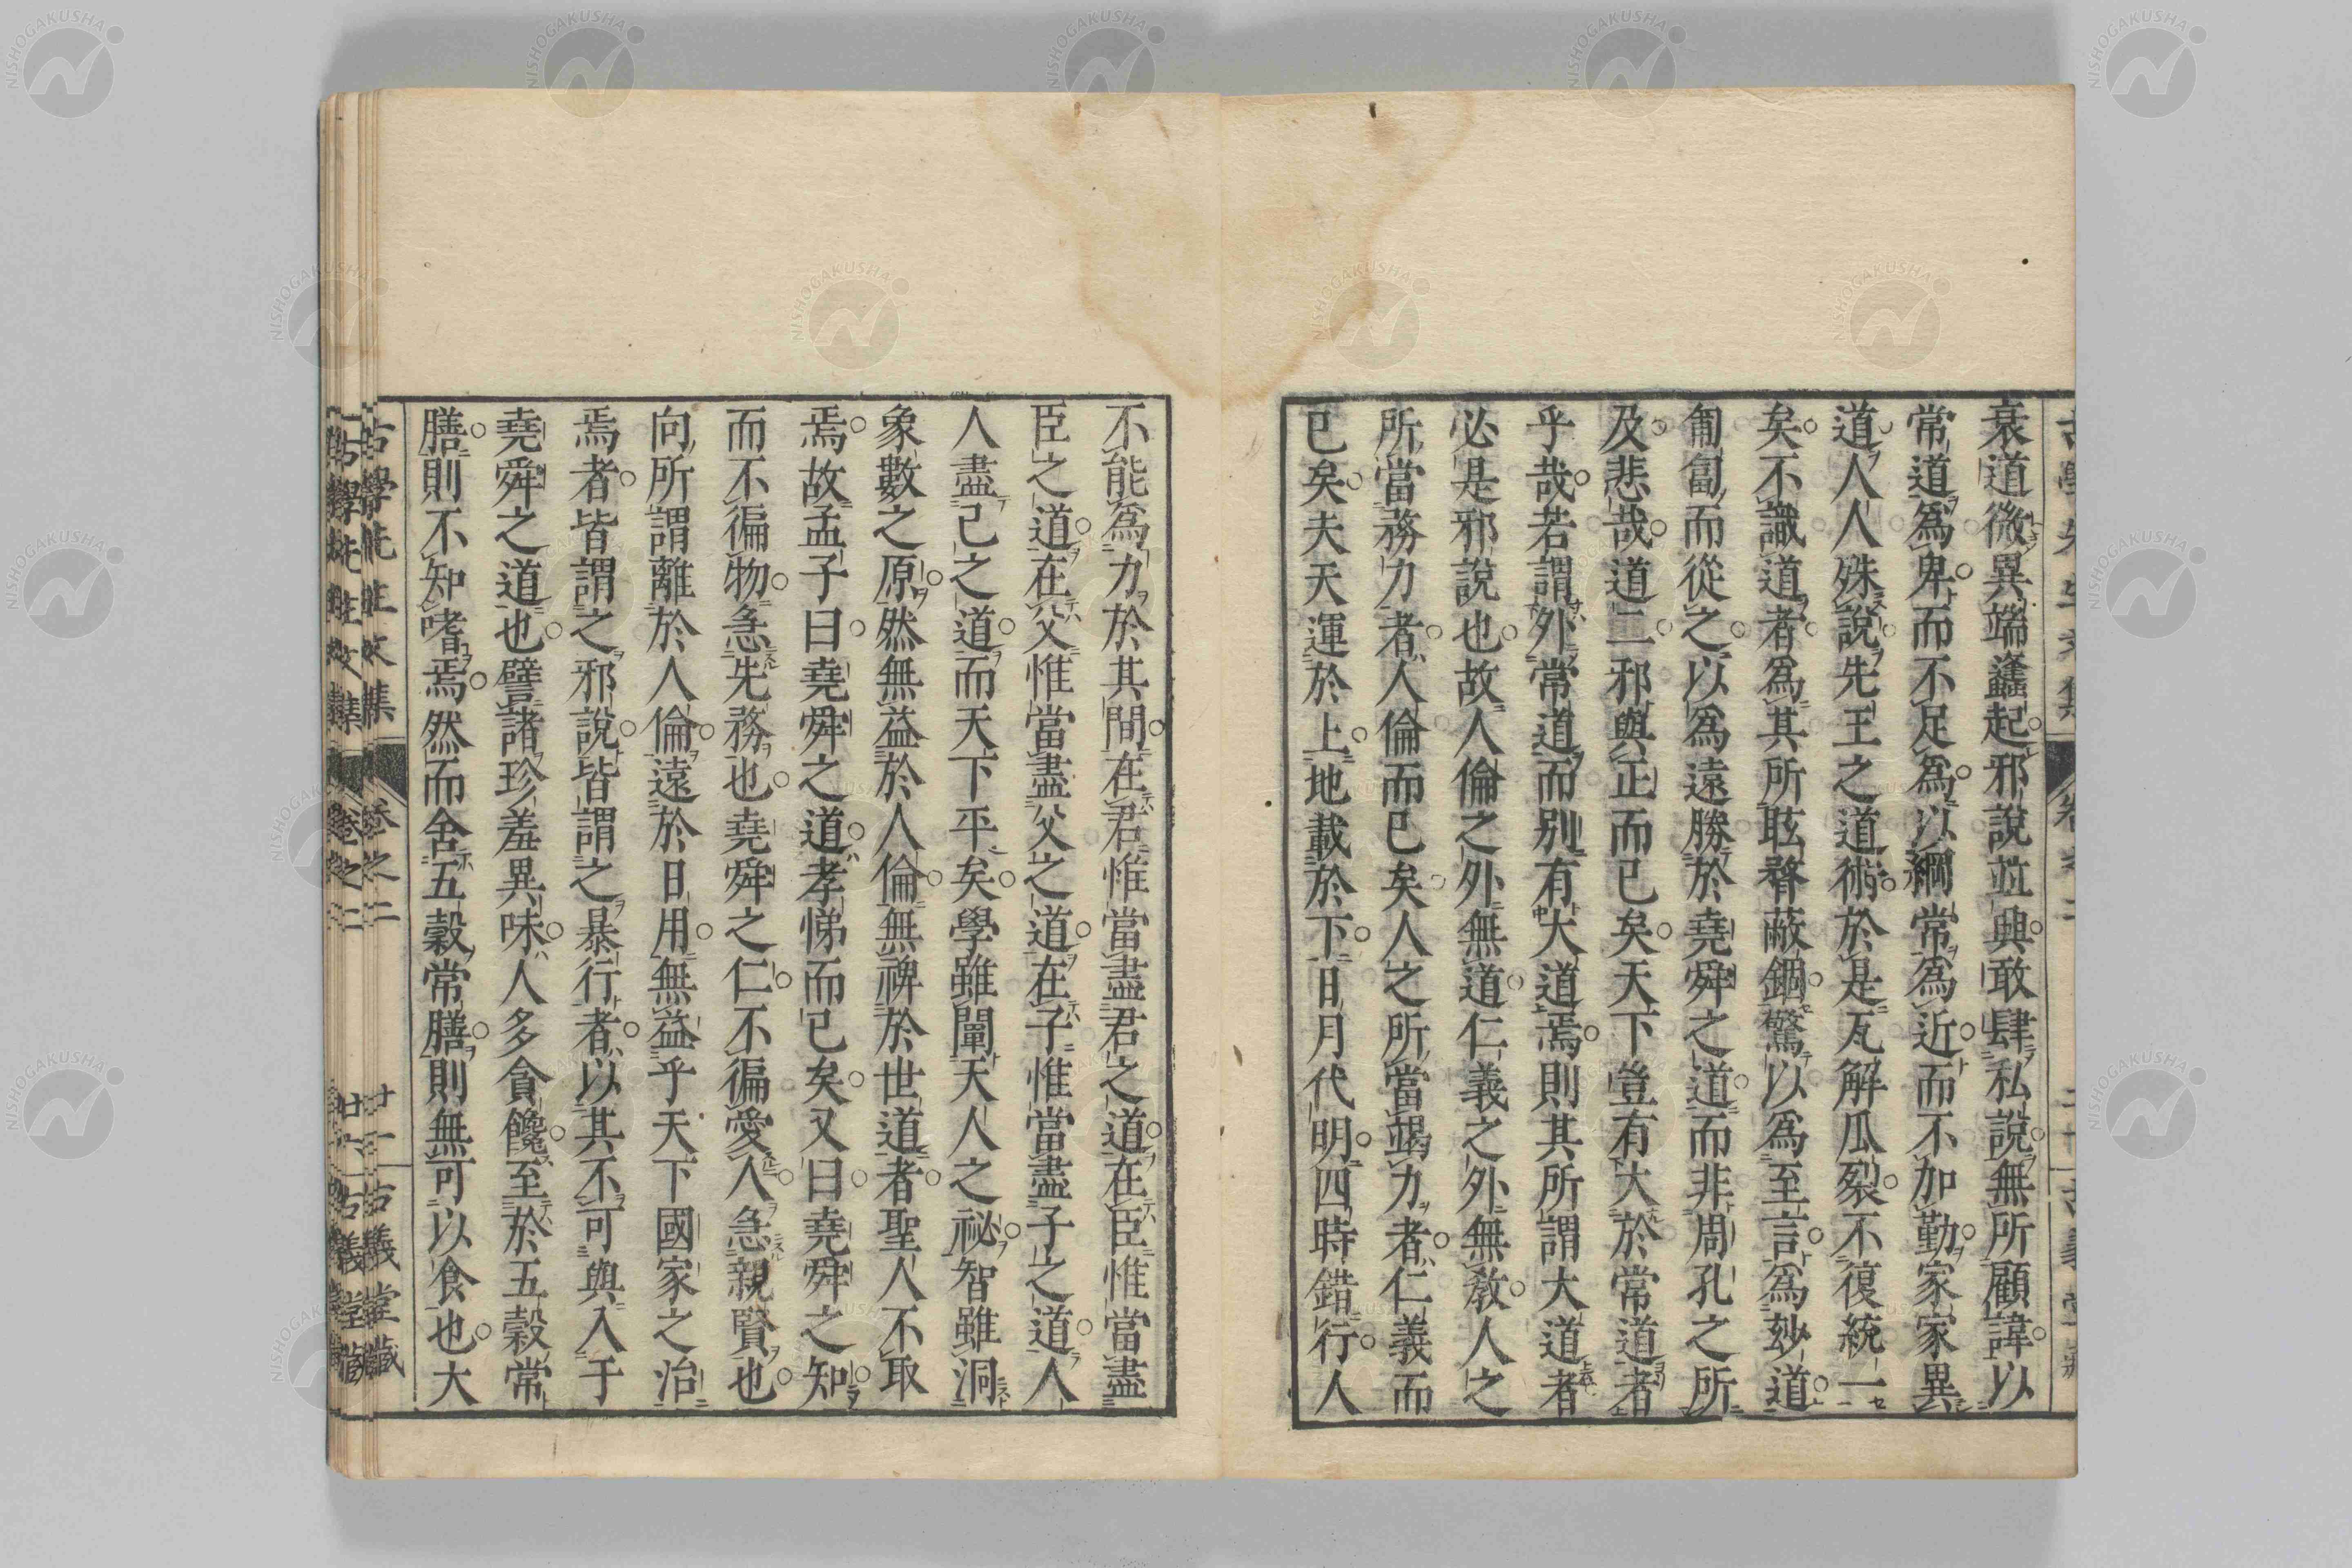 衰道微異端蠭起邪說並興敢肆私說無所顧諱以
常道爲卑而不足爲以綱常爲近而不加勤家家異
道人人殊說先王之道術於是瓦解瓜裂不復統一
矣不識道者爲其所眩瞀蔽錮驚以爲至言爲玅道
匍匐而從之以爲遠勝於堯舜之道而非周孔之所
及悲哉道二邪與正而已矣天下豈有大於常道者
乎哉若謂外常道而别有大道焉則其所謂大道者
必是邪說也故人倫之外無道仁義之外無教人之
所當務力者人倫而已矣人之所當竭力者仁義而
已矣夫天運於上地載於下日月代明四時錯行人
不能爲力於其間在君惟當盡君之道在臣惟當盡
臣之道在父惟當盡父之道在子惟當盡子之道人
人盡己之道而天下平矣學雖闡天人之祕智雖洞
象數之原然無益於人倫無裨於世道者聖人不取
焉故孟子曰堯舜之道孝悌而已矣又曰堯舜之知
而不徧物急先務也堯舜之仁不徧愛人急親賢也
向所謂離於人倫遠於日用無益乎天下國家之治
焉者皆謂之邪說皆謂之暴行者以其不可與入于
堯舜之道也譬諸珍羞異味人多貪饞至於五穀常
膳則不知嗜焉然而舍五穀常膳則無可以食也大
古學先生文集 卷之二 廿一 古義堂藏
NISHOGAKUSHA